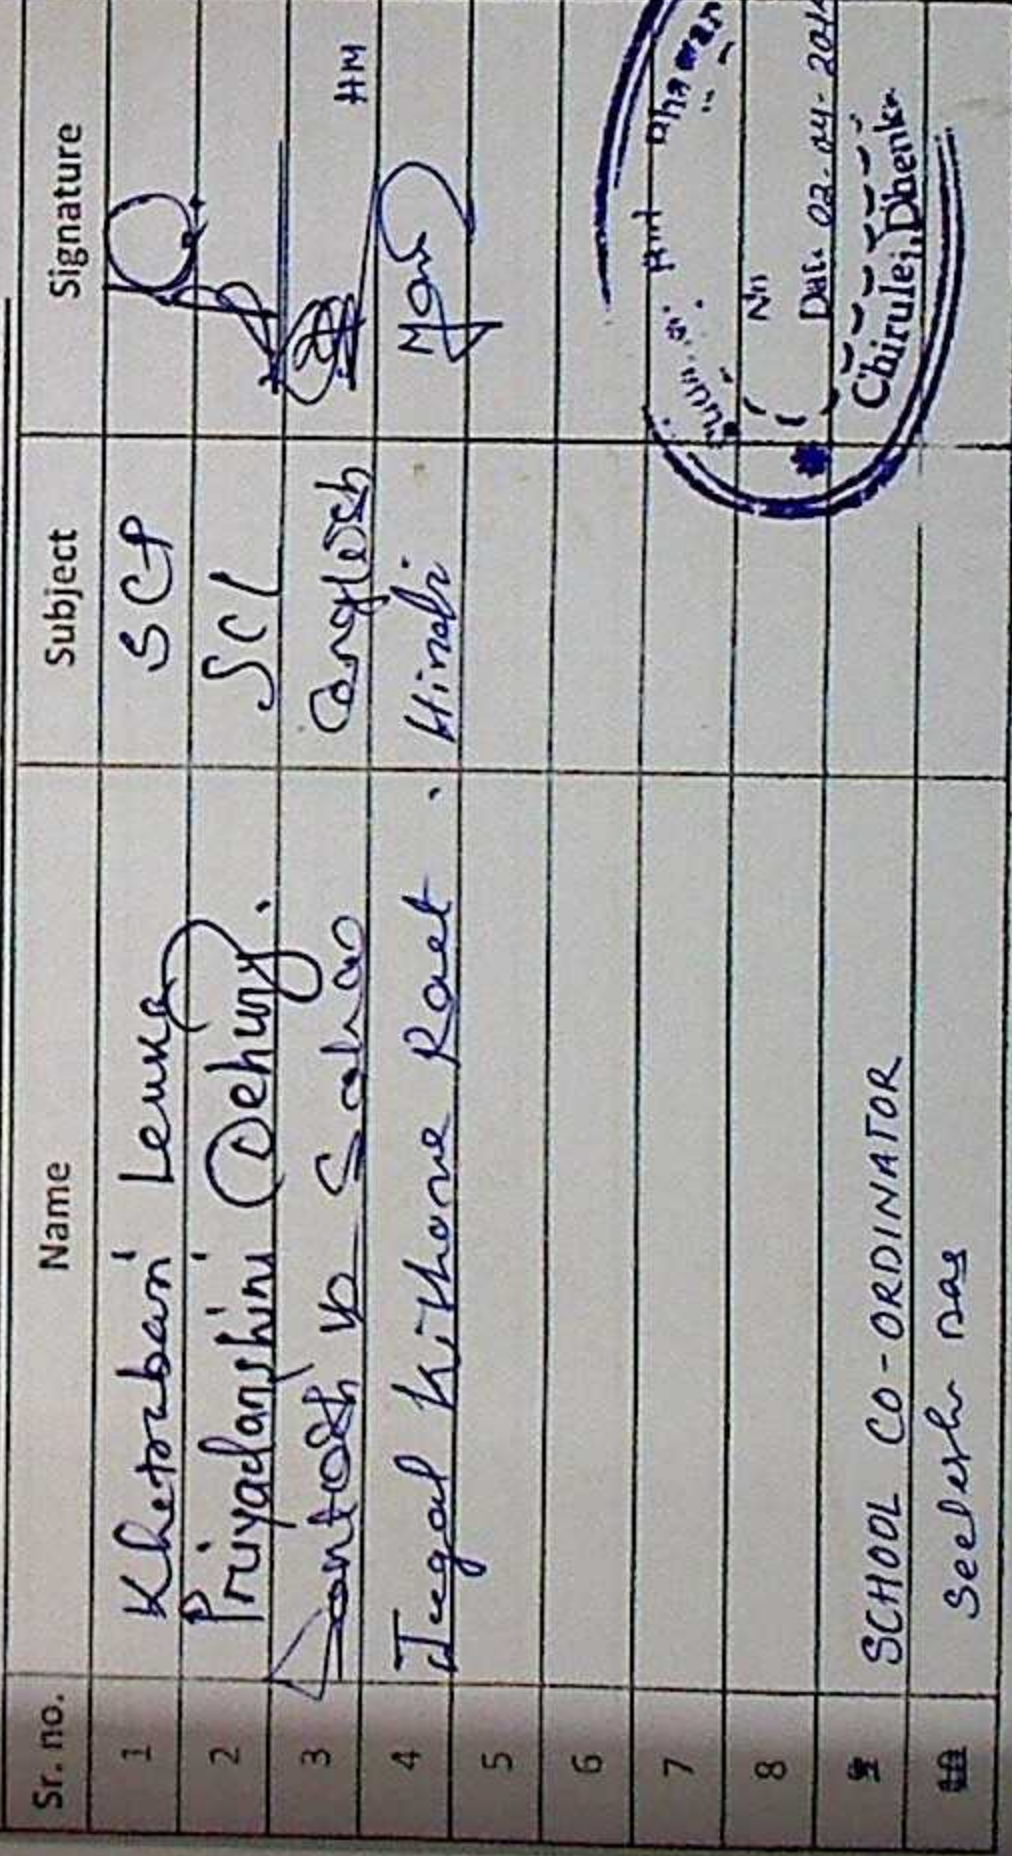 Sr. no. Name Subject Signature
1 Khetrabasi Lenka SCP
2 Priyadarshini Dehury. SCI
3 Santosh K Sahoo English HM
4 Jugal Kishore Raet. Hindi
5
6
7
8
SCHOOL CO-ORDINATOR
Seelesh Das
No
Date 02-04-201
Chirulei, Dhenk